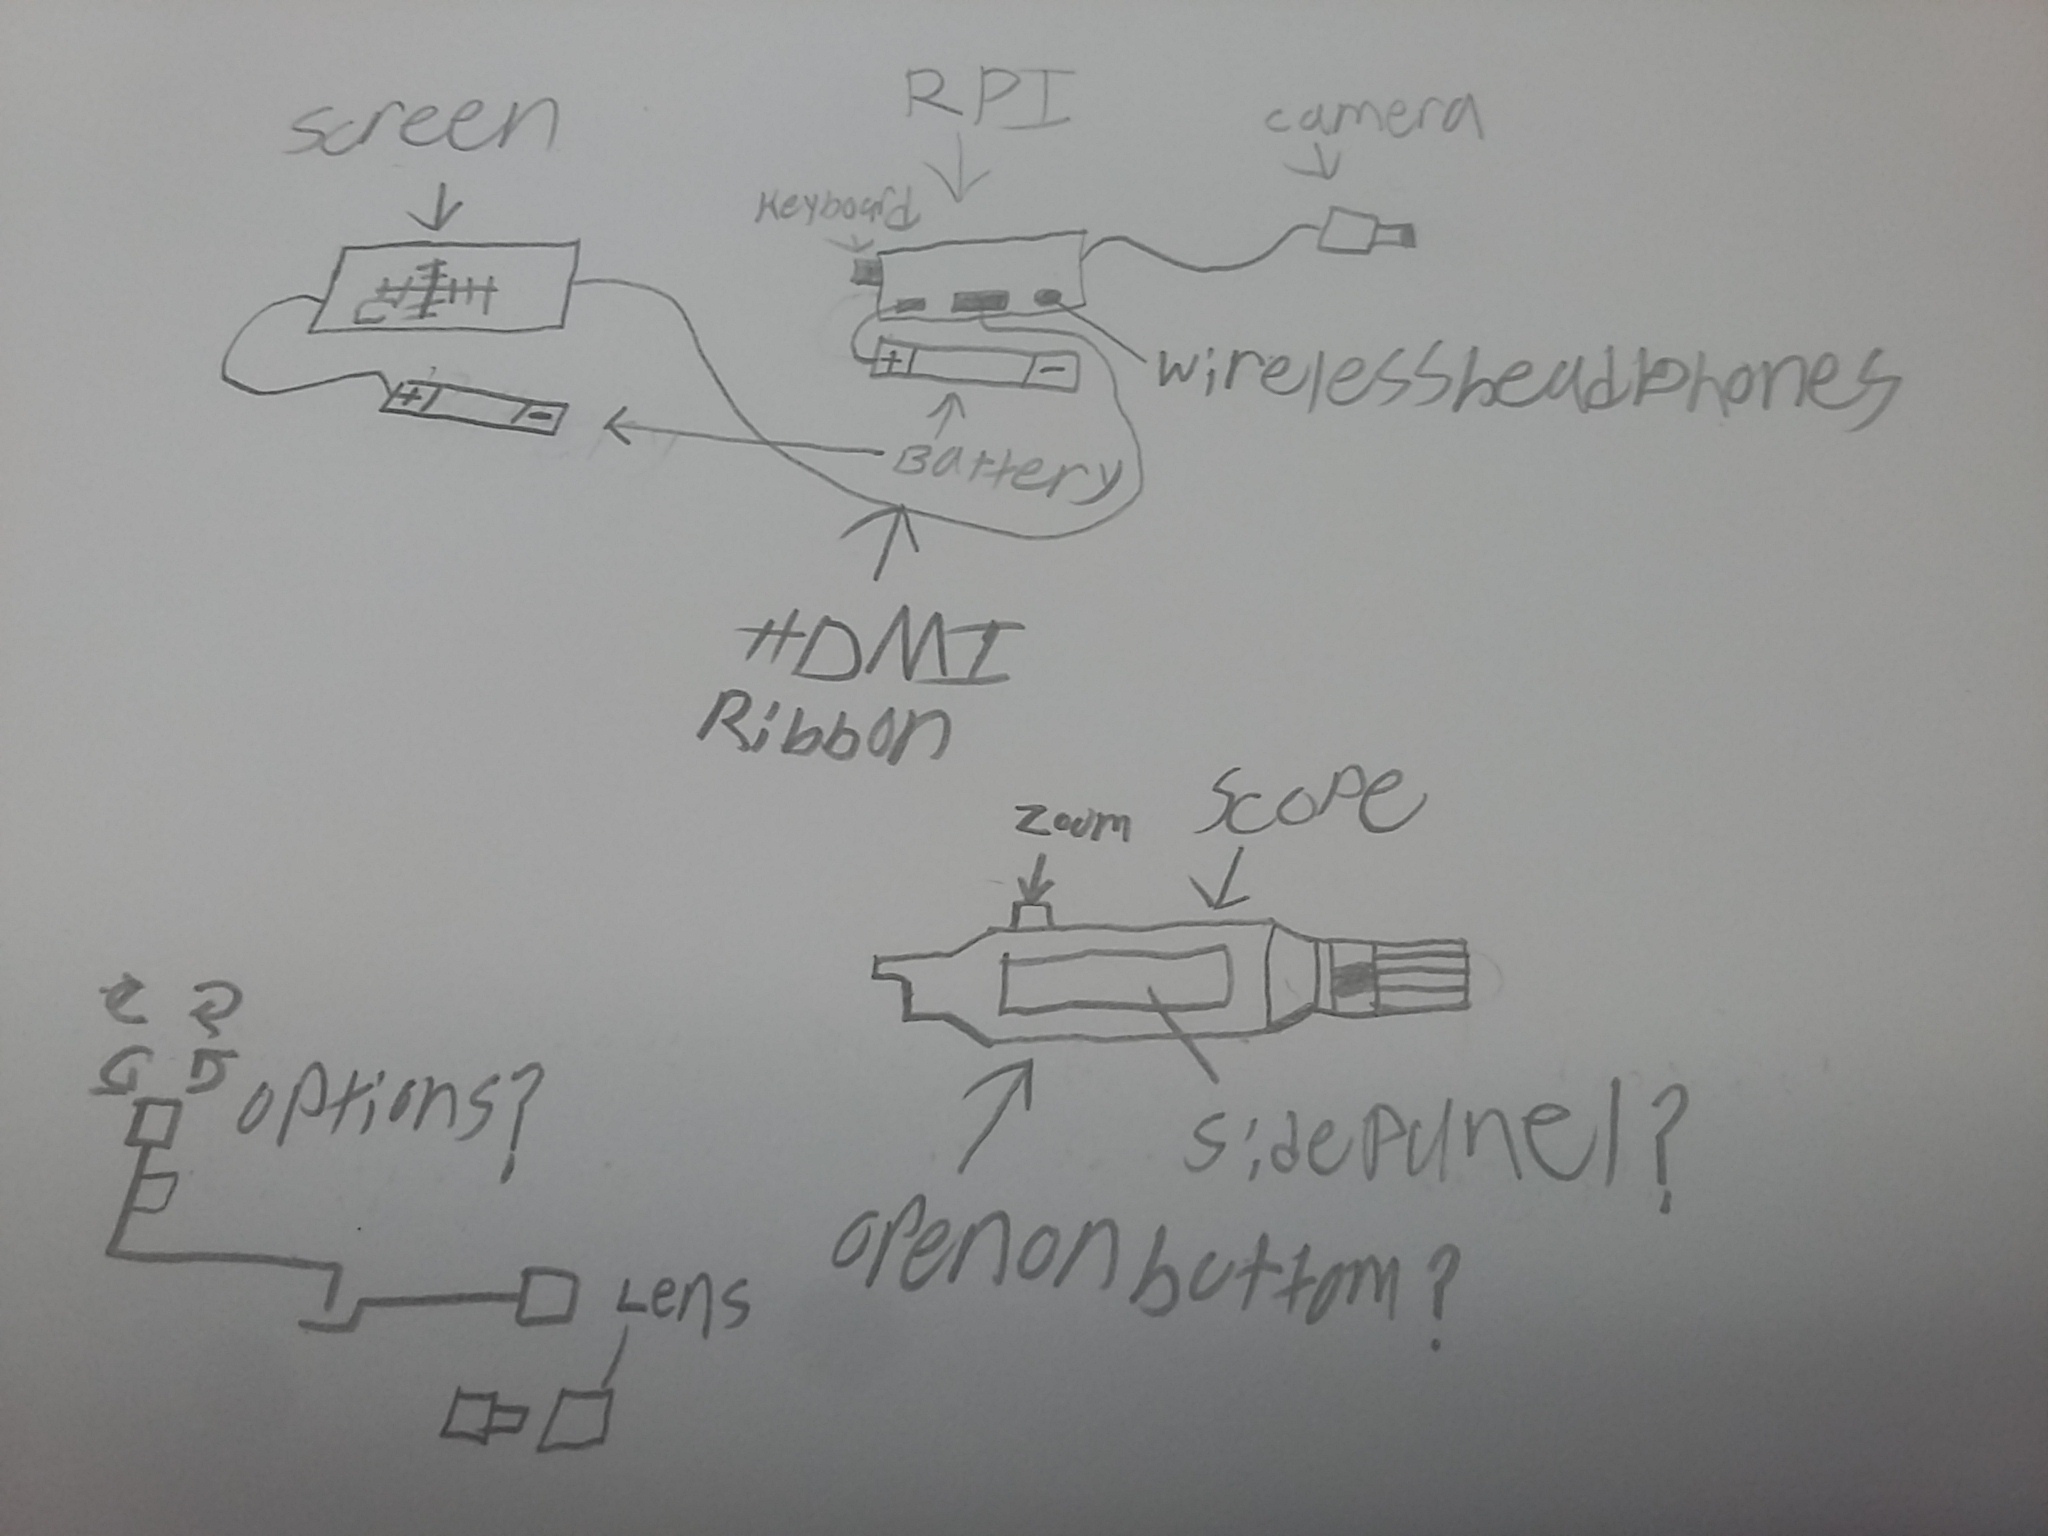 screen
RPI
camera
Keyboard
+ -
+ -
wirelessheadphones
Battery
HDMI
Ribbon
zoom
scope
options?
sidepanel?
openonbottom?
Lens